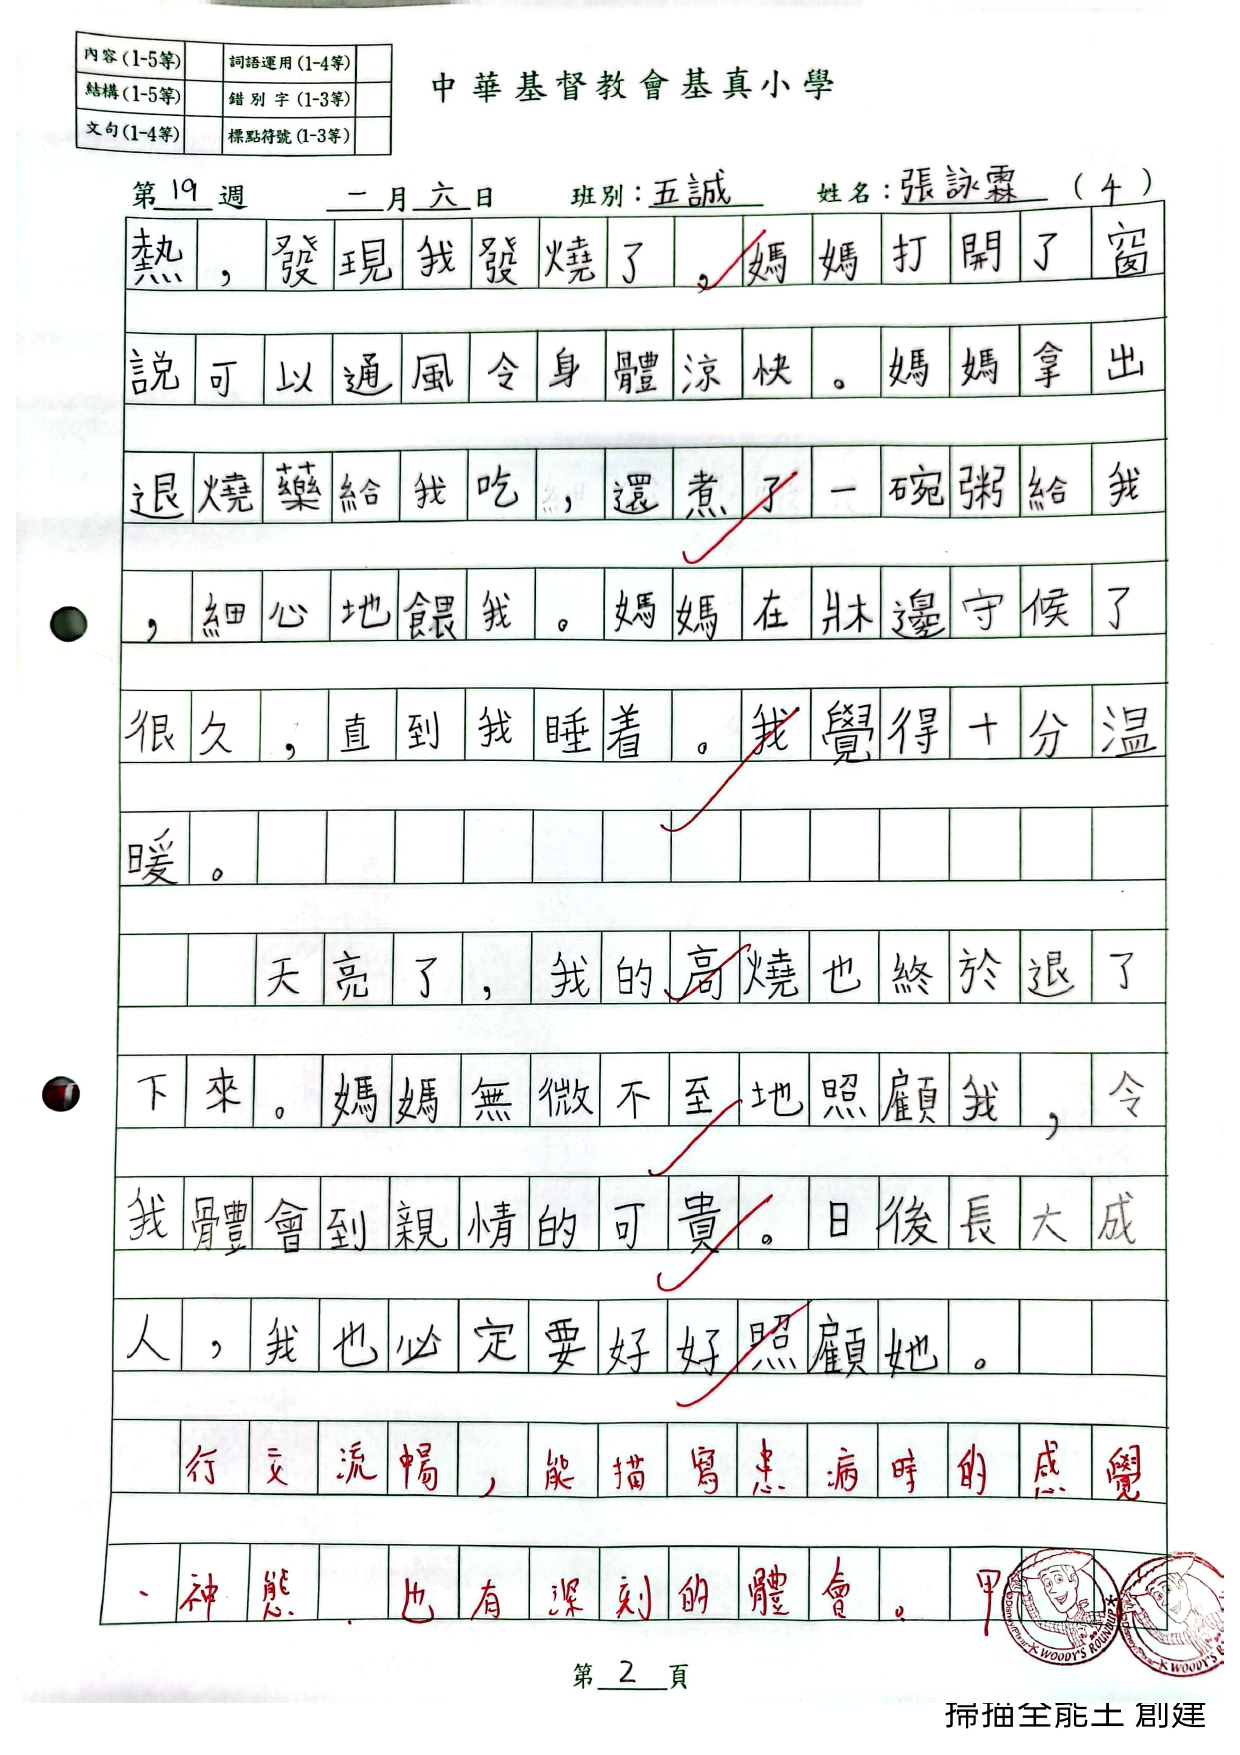 內容(1-5等) 詞語運用(1-4等)
結構(1-5等) 錯別字(1-3等)
文句(1-4等) 標點符號(1-3等)
中華基督教會基真小學
第19週 二月六日 班別:五誠 姓名:張詠霖 (4)
熱,發現我發燒了。媽媽打開了窗
說可以通風令身體涼快。媽媽拿出
退燒藥給我吃,還煮了一碗粥給我
,細心地餵我。媽媽在牀邊守候了
很久,直到我睡着。我覺得十分温
暖。
天亮了,我的高燒也終於退了
下來。媽媽無微不至地照顧我,令
我體會到親情的可貴。日後長大成
人,我也必定要好好照顧她。
行文流暢,能描寫患病時的感覺
、神態.也有深刻的體會。甲
WOODY'S ROUNDUP
WOODY'S
第2頁
掃描全能王 創建